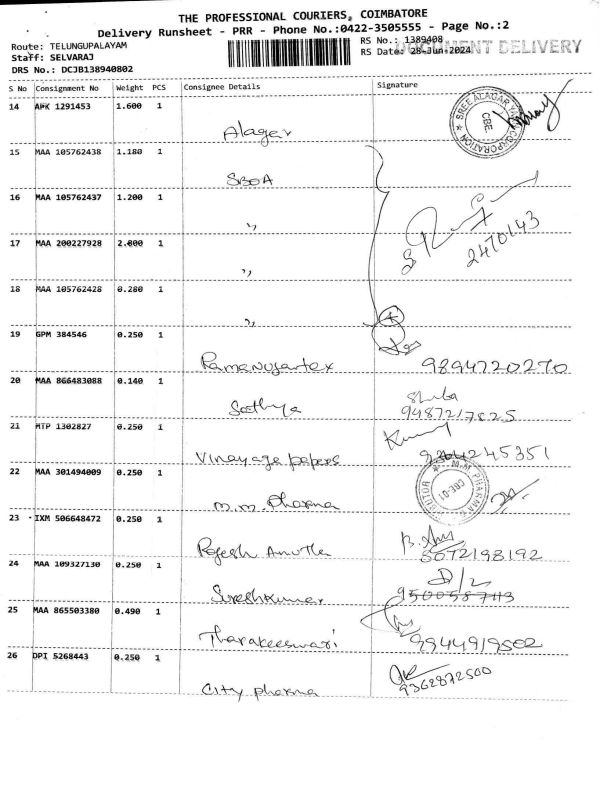 THE PROFESSIONAL COURIERS, COIMBATORE
Delivery Runsheet - PRR - Phone No.:0422-3505555 - Page No.:2
Route: TELUNGUPALAYAM
Staff: SELVARAJ
DRS No.: DCJB138940802
RS No.: 1389408
RS Date: 28-Jun-2024
DOCUMENT DELIVERY
S No Consignment No Weight PCS Consignee Details Signature
14 APK 1291453 1.600 1 Alager
SREE ALAGAR CORPORATION CBE.
15 MAA 105762438 1.180 1 SBOA
16 MAA 105762437 1.200 1 "
2470143
17 MAA 200227928 2.000 1 "
18 MAA 105762428 0.280 1 "
19 GPM 384546 0.250 1 9894720270
20 MAA 866483088 0.140 1 Sathya
9487217825
21 MTP 1302827 0.250 1 Vinayaga papers 245351
22 MAA 301494009 0.250 1 M.M. Pharma
M.M. PHARMA CBE-01
23 IXM 506648472 0.250 1 Rajesh 8072198192
24 MAA 109327130 0.250 1 Sureshkumar D/L
9500587113
25 MAA 865503380 0.490 1 Tharakeeswari 9944919502
26 DPI 5268443 0.250 1 City pharma 9362872500